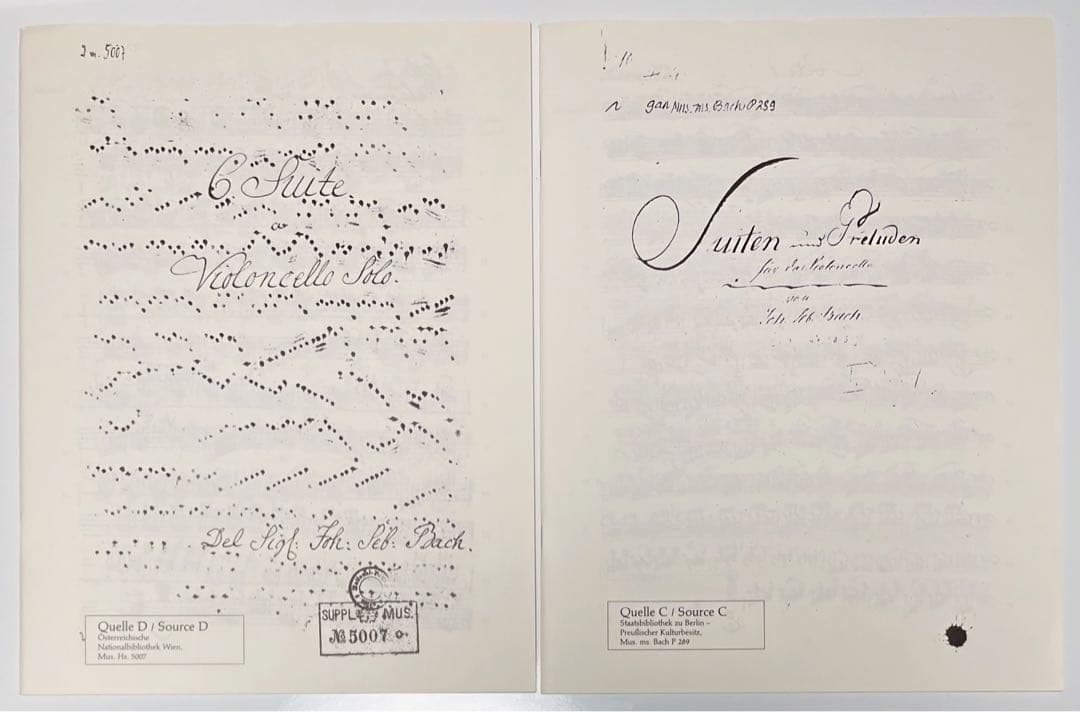 2 m. 5007
6 Suite
a
Violoncello Solo.
Del Sigr. Joh: Seb: Bach.
SUPPL MUS.
№ 5007
Quelle D / Source D
Österreichische
Nationalbibliothek Wien,
Mus. Hs. 5007
Mus. ms. Bach P 289
Suiten und Preluden
für das Violoncello
von
Joh. Seb. Bach.
Quelle C / Source C
Staatsbibliothek zu Berlin –
Preußischer Kulturbesitz,
Mus. ms. Bach P 289